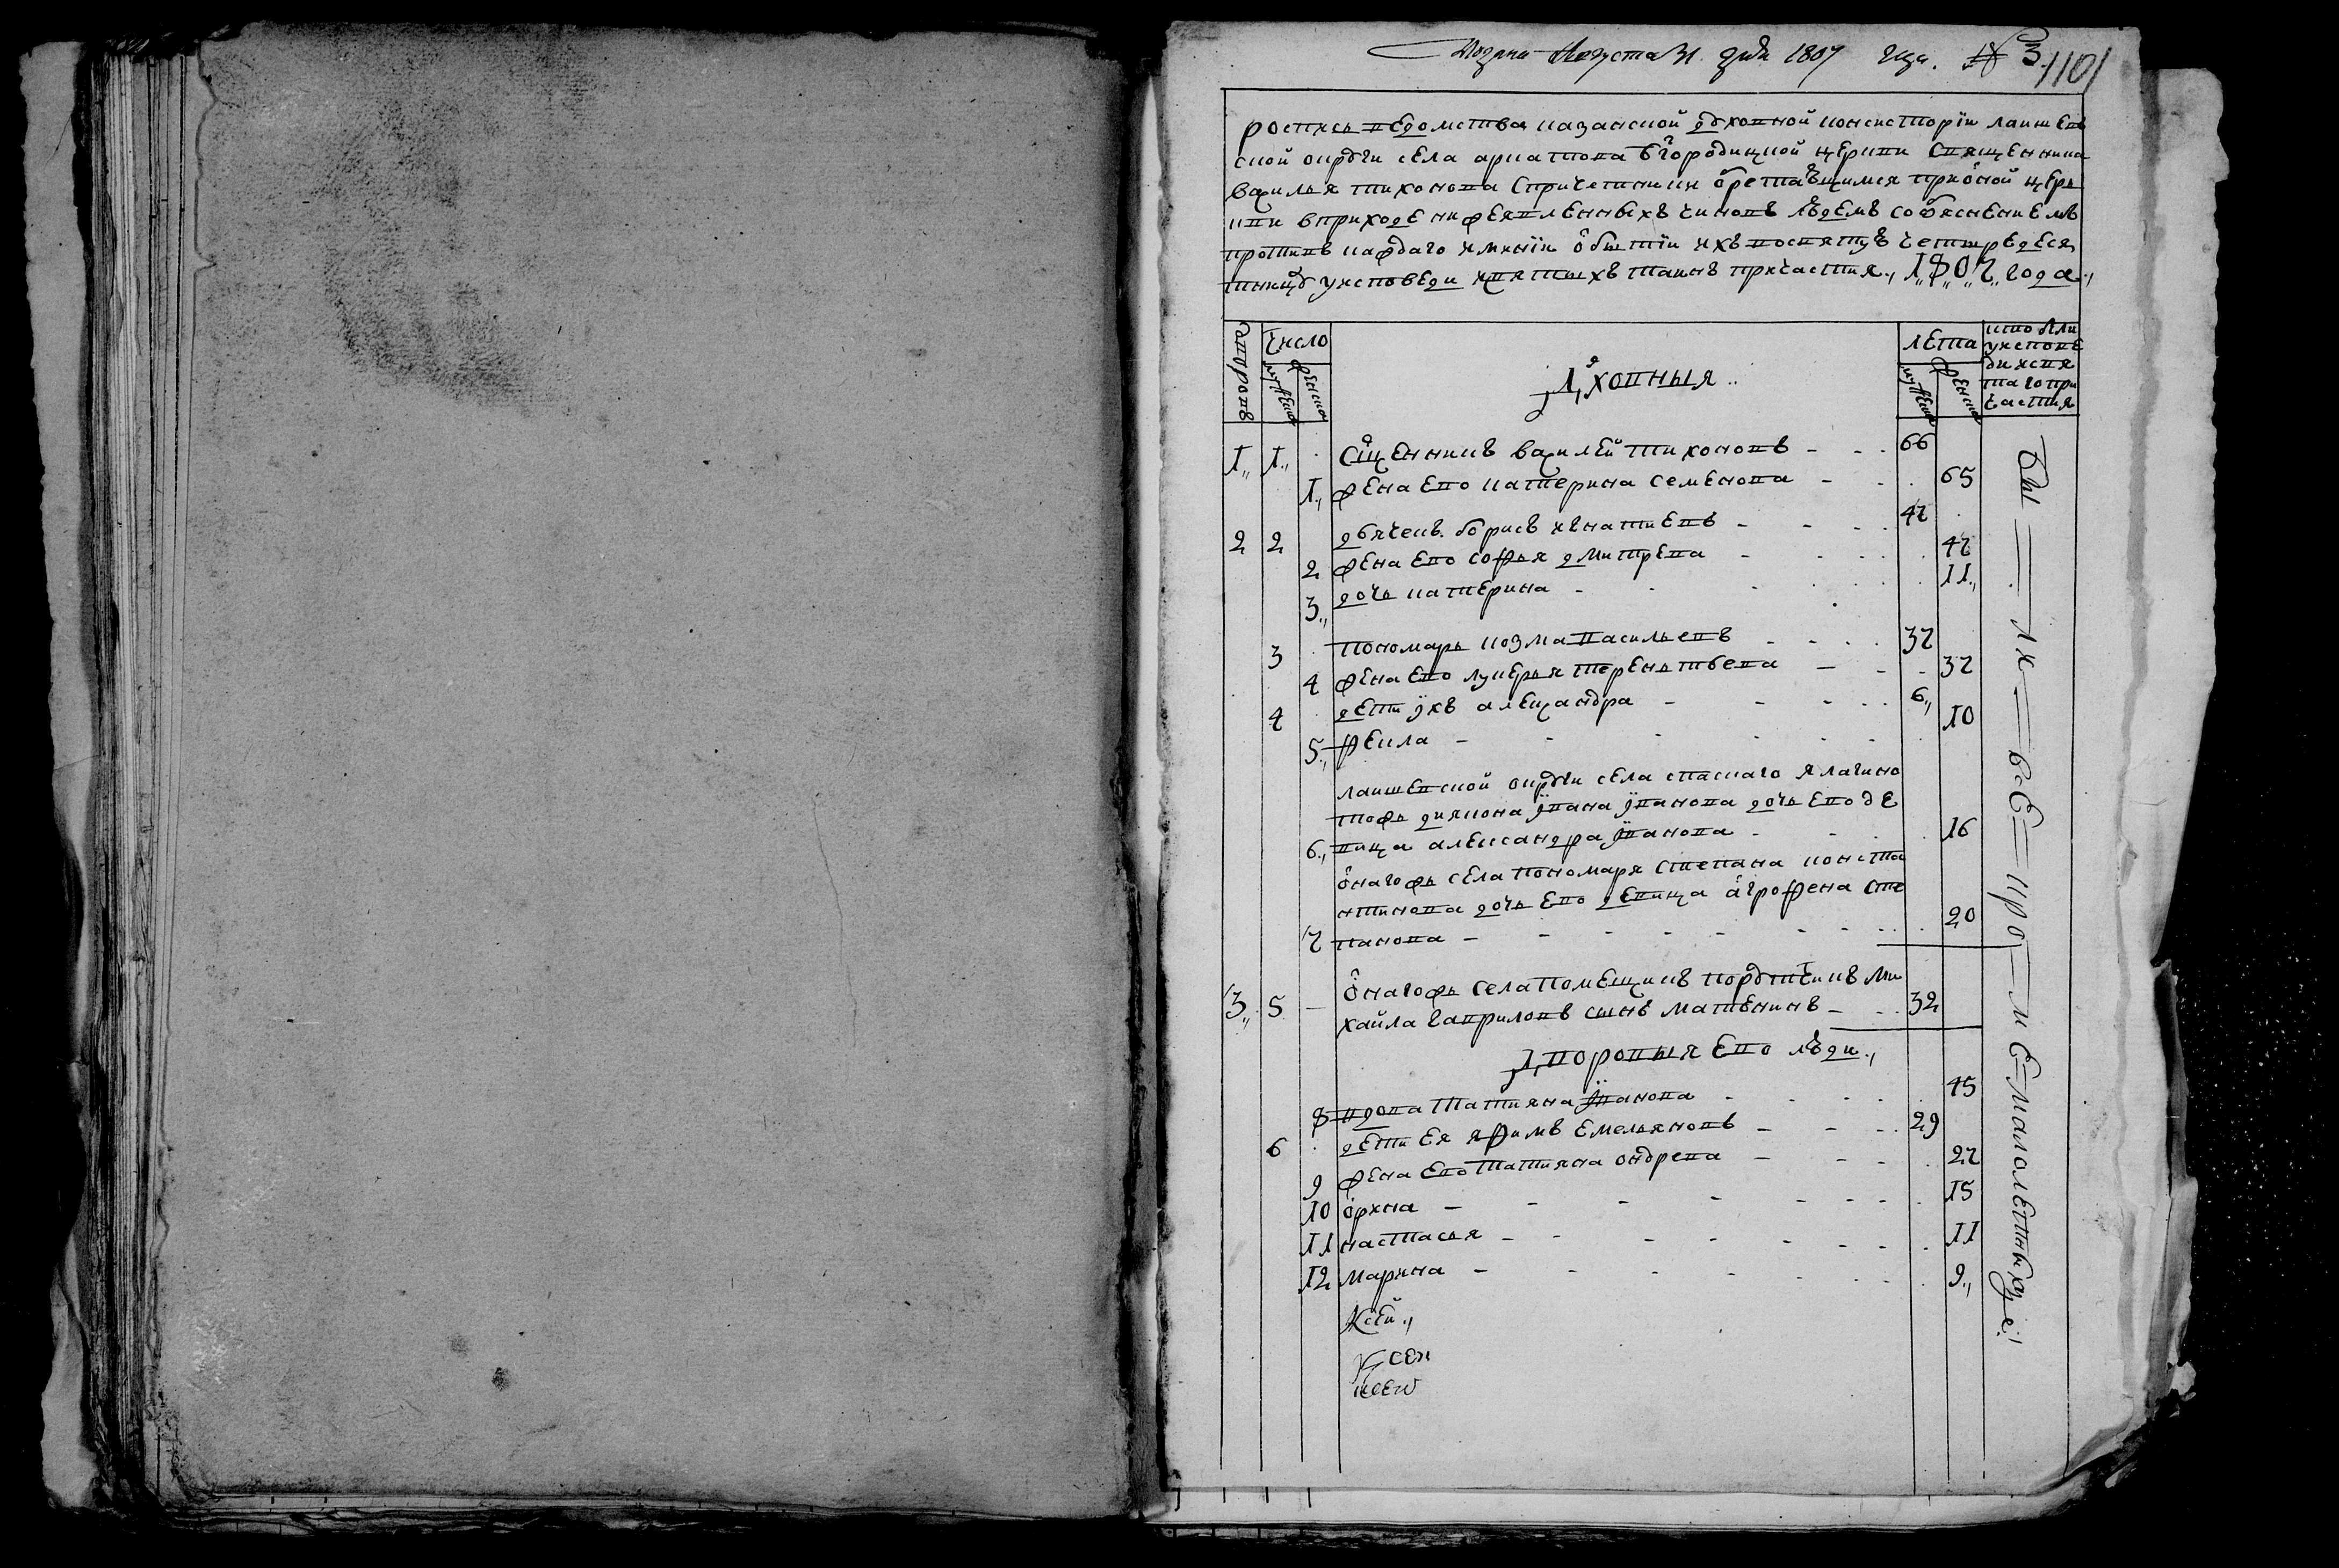 Подана Августа 31 дня 1807 года. № 3. 1101
роспись ведомства казанской дховной консисторiи лаишев
ской округи села арнатова бгородицкой церкви священника
василья тихонова спричетники обретающимся прионой церь
кви вприходе нижеявленныхъ чиновъ людемъ собяснениемъ
противъ каждаго имянiи о бытiи ихъ восвятую четыредеся
тницу уисповеди исвятыхъ таинъ причастия., 1807 года.,
дворовъ
число
мужеска
женска
Дховныя..
лета
мужеска
женска
кто были
уиспове
ди исвя
таго при
частия
1 1 сщенникъ василей тихоновъ 66
1 жена ево катерина семенова 65
2 2 дьячекъ борисъ игнатиевъ 47
2 жена ево софья дмитрева 47
3 дочь катерина 11
3 пономарь козма васильевъ 37
4 жена ево лукерья терентьева 37
4 дети ихъ александра 6
5 фекла 10
лаишевской округи села спаскаго я лагино
тожь диякона ивана иванова дочь ево де
6 вица александра иванова 16
онагожь села пономаря степана конста
нтинова дочь ево девица агрофена сте
7 панова 20
3 5 онагожь села помещикъ порутчикъ ми
хайла гавриловъ сынъ матвенинъ 32
Дворовыя ево люди.,
8 вдова татияна иванова 45
6 дети ея яфимъ емельяновъ 29
9 жена ево татияна ондрева 27
10 орина 15
11 настасья 11
12 марина 9
Ксей.,
ксеи
ксею
Бы ли все кроме малолетныхъ